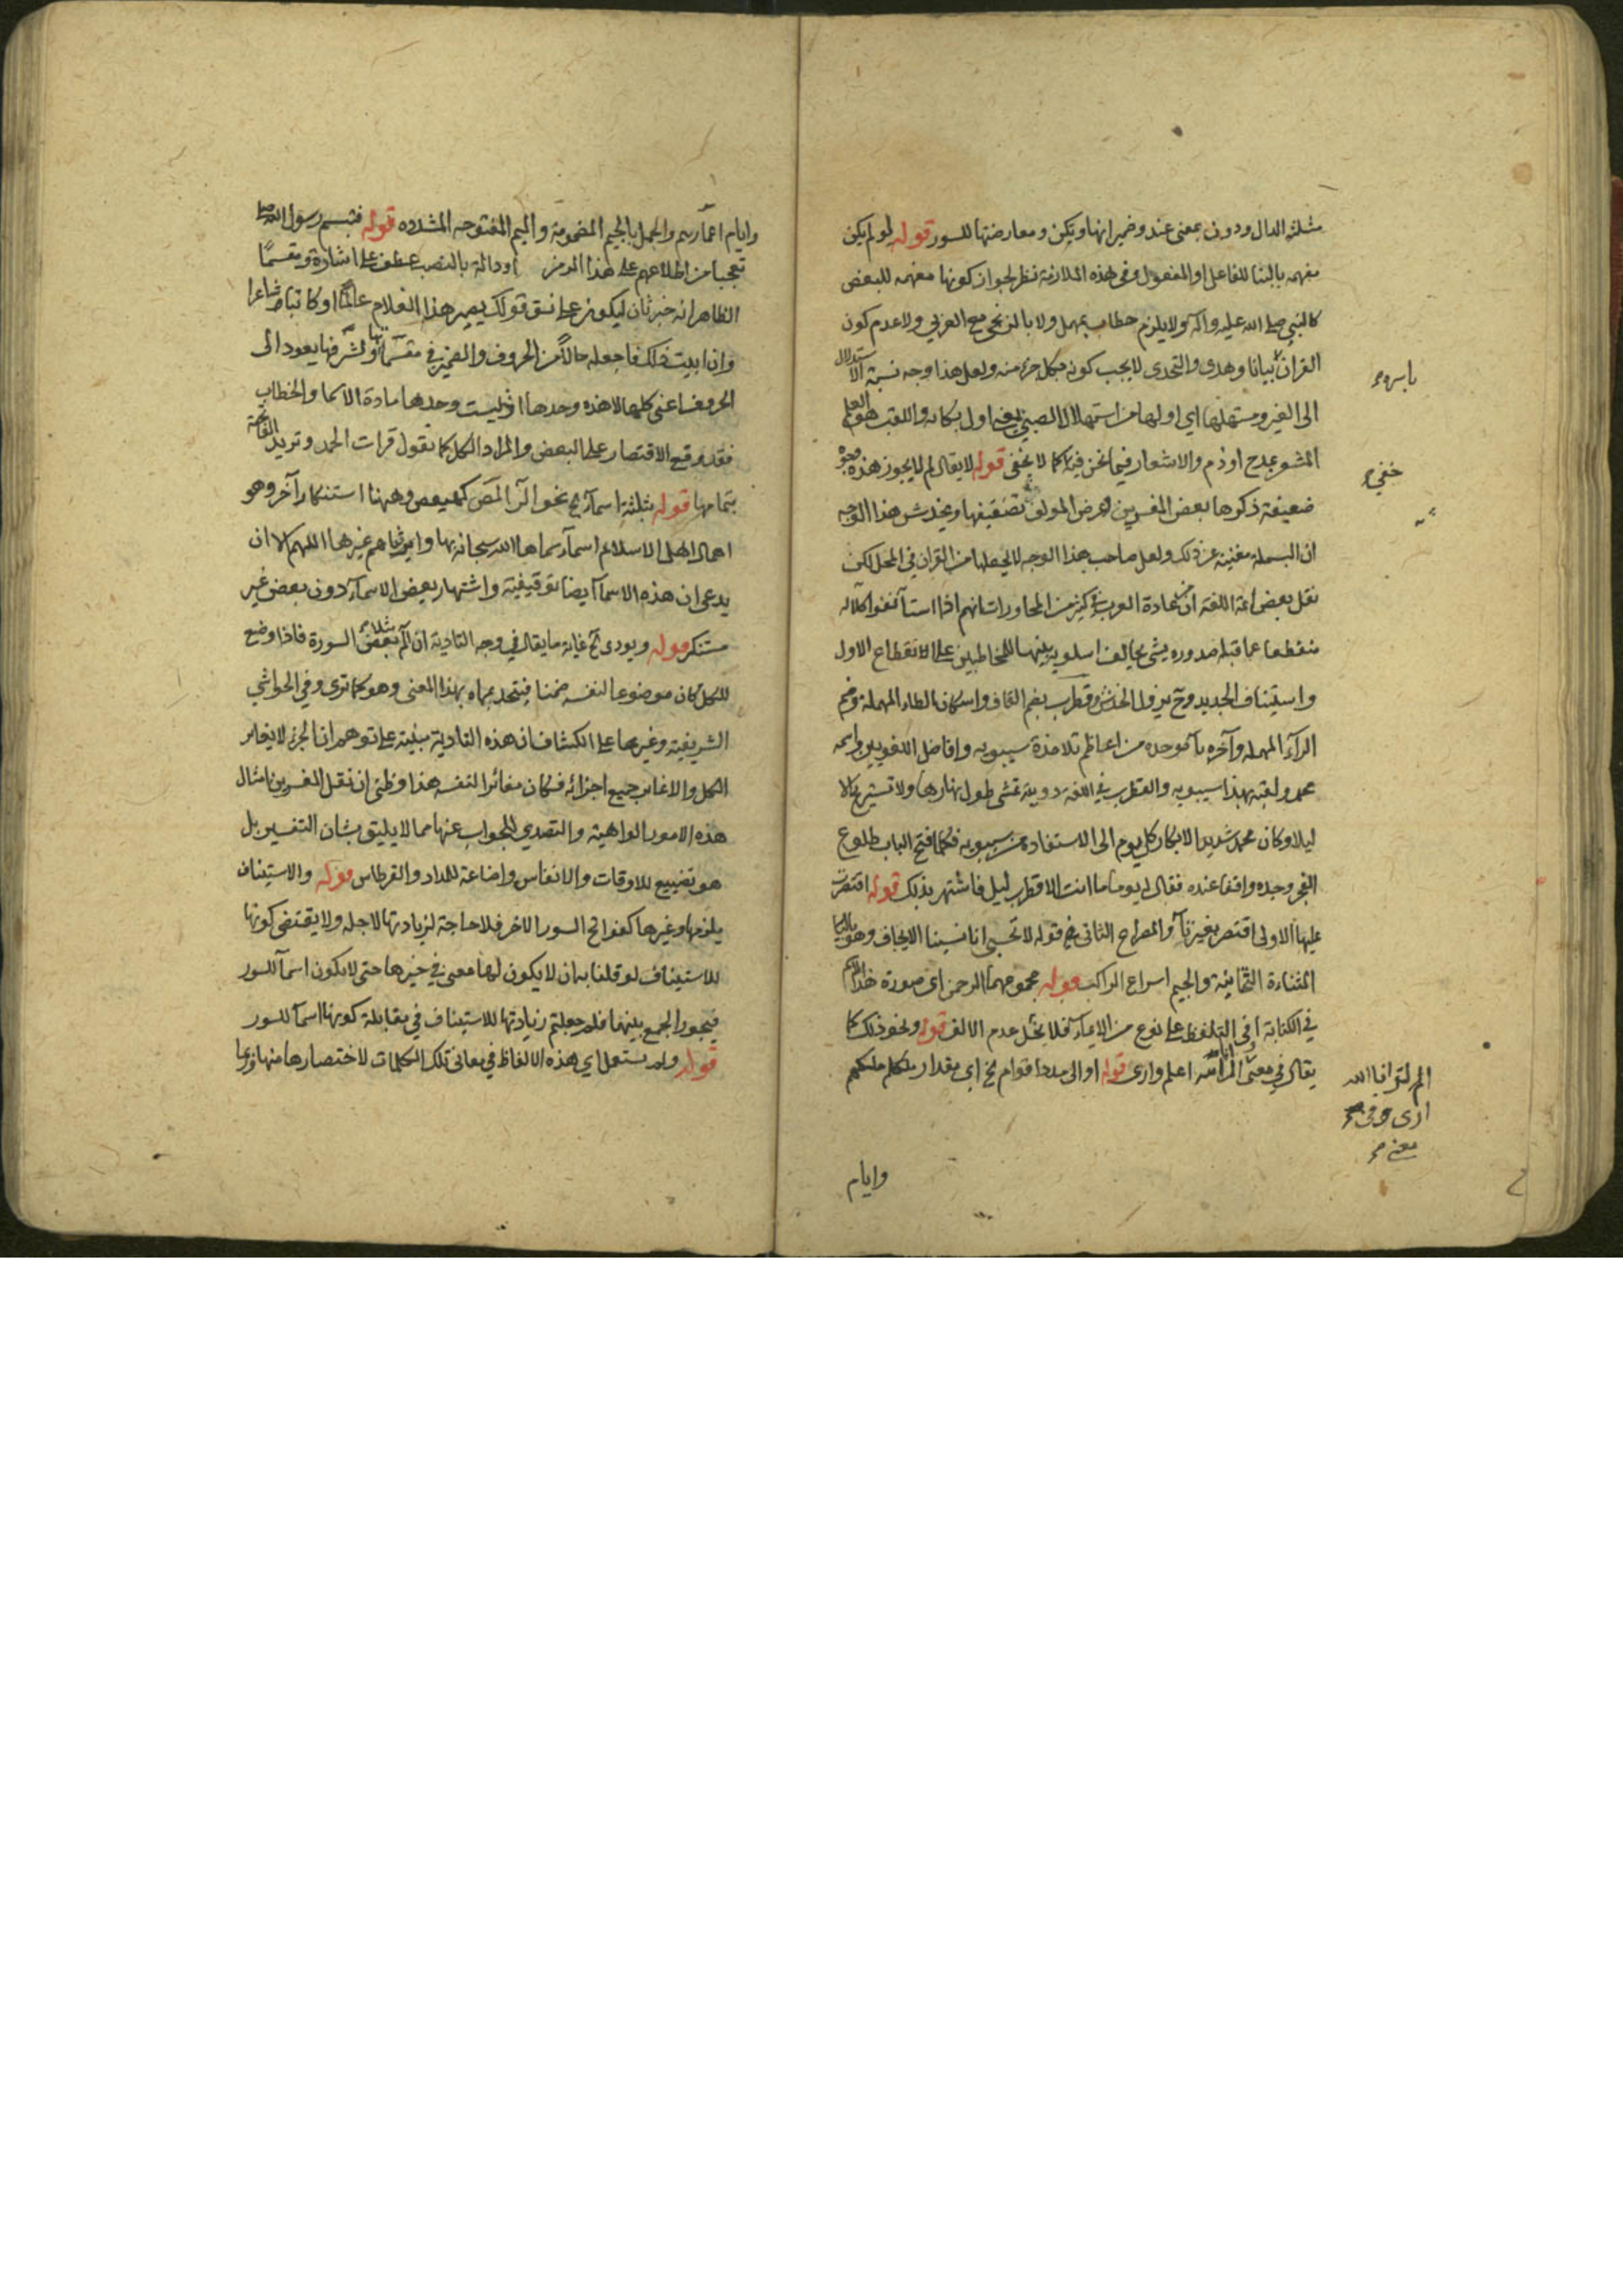 مثلثه الدال ودون بمعنى عند وضمير انها ويكن ومعارضتها للسور قوله لو لم يكن
مفهمه بالبنا للفاعل او المفعول وفى هذه الملازمة نظر لجواز كونها مفهمه للبعض
كالنبي صلى الله عليه وآله ولا يلزم خطاب بمهمل ولا بالزنجى مع العربي ولا عدم كون
القران بيانا وهدى والتحدى لا يجب كونه بكل جزء منه ولعل هذا وجه نسبة الاستدلال
الى الغير ومستهلها اي اولها من استهلال الصبي يعنى اول بكائه واللقب هو العلم
المشعر بمدح او ذم والاشعار فيما نحن فيه كما لا يخفى قوله لا يقال لم لا يجوز هذه وجوه
ضعيفة ذكرها بعض المفسرين غرض المولف تضعيفها ويخدش هذا الوجه
ان البسملة مغنية عن ذلك ولعل صاحب هذا الوجه لا يجعلها من القران في المحل لكن
نقل بعض ائمة اللغة ان عادة العرب في كثير من المحاورات انهم اذا استأنفوا كلاما
منقطعا عما قبله صدوره بشى يخالف اسلوبه تنبيها للمخاطبين على الانقطاع الاول
واستيناف الجديد وح يزول الخدش وقطرب بضم القاف واسكان الطاء المهملة وضم
الرآء المهمله وآخره بآء موحده من اعاظم تلامذة سيبويه وافاضل اللغويين واسمه
محمد ولقبه بهذا سيبويه والقطرب في اللغة دويبة تمشى طول نهارها ولا تستريح الا
ليلا وكان محمد شديد الابكار كل يوم الى الاستفادة من سيبويه فكلما فتح الباب طلوع
الفجر وجده واقفا عنده فقال له يوما ما انت الا قطرب ليل فاشتهر بذلك قوله اقتصرت
عليها الاولى اقتصر بغير تآء والمصراع الثانى قوله لا تحسبى انا نسينا الايجاف وهو بالياء
المثناة التحتانية والجيم اسراع الراكب قوله مجموعهما الرحمن اى صورة
في الكتابة او فى التلفظ على نوع من الايمآء فلا يخل عدم الالف قوله ونحو ذلك كما
يقال في معنى المر انا الله اعلم وارى قوله او الى مدد اقوام الخ اى مقدار ملكهم
باسره صح
خفي صح
الم لتر انا الله
ارى وفى صح
معنى صح
وايام
وايام اعمارهم والجمل بالجيم المضمومة والميم المفتوحه المشدده قوله فتبسم رسول الله صلى
تعجبا من اطلاعهم على هذا الرمز او دالة بالنصب عطف على اشارة ومقسمًا
الظاهر انه خبر ثان ليكون على نسق قولك يصير هذا الغلام عالمًا او كاتبا شاعرا
وان ابيت ذلك فاجعله حالاً من الحروف والضمير في مقسما بها ولشرفها يعود الى
الحروف اعنى كلها لا هذه وحدها اذ ليست وحدها مادة الاسما والخطاب
فقد وقع الاقتصار على البعض والمراد الكل كما تقول قرات الحمد وتريد الفاتحة
بتمامها قوله بثلثة اسمآء الخ نحو الٓر الٓمٓصٓ كهيعص وههنا استنكار آخر وهو
اهمال اهل الاسلام اسمآء سماها الله سبحانه بها وايثارهم غيرها اللهم الا ان
يدعى ان هذه الاسمآء ايضا توقيفية واشتهار بعض الاسمآء دون بعض غير
مستنكر قوله ويودى الخ غاية ما يقال في وجه التادية ان الٓم مثلا بعض السورة فاذا وضع
للكل كان موضوعا لنفسه ضمنا فيتحد بمسماه بهذا المعنى وهو كما ترى وفي الحواشي
الشريفية وغيرها على الكشاف ان هذه التادية مبنية على توهم ان الجزء لا يغاير
الكل والا غاير جميع اجزائه فكان مغائرا لنفسه هذا وظني ان نقل المفسرين امثال
هذه الامور الواهية والتصدي للجواب عنها مما لا يليق بشان التفسير بل
هو تضييع للاوقات والانفاس واضاعة للمداد والقرطاس قوله والاستيناف
يلزمها وغيرها كفواتح السور الاخر فلا حاجة لزيادتها لاجله ولا يقتضى كونها
للاستيناف لو قلنا به ان لا يكون لها معنى في حيزها حتى لا يكون اسمآء للسور
فيجوز الجمع بينهما فلم جعلتم زيادتها للاستيناف في مقابلة كونها اسمآء للسور
قوله ولم يستعمل اي هذه الالفاظ في معانى تلك الكلمات لاختصارها منها